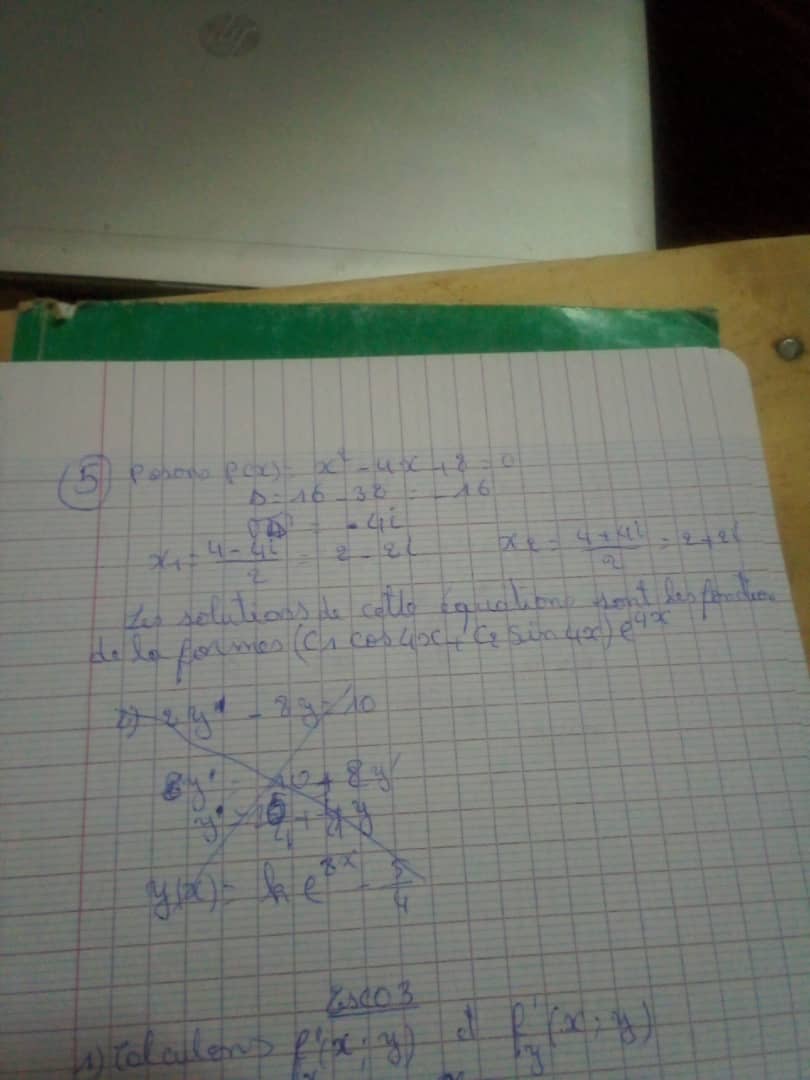 hp
5 Posons P(x) = x² - 4x + 8 = 0
Δ = 16 - 32 = -16
= -4i
x₁ = (4 - 4i)/2 = 2 - 2i x₂ = (4 + 4i)/2 = 2 + 2i
Les solutions de cette équations sont les fonction
de la formes (C₁ cos 4x + C₂ sin 4x) e^4x
2y' - 8y = 10
y' = 10 + 8y
y(x) = k e^8x - 5/4
Exo 3
1) Calculons f'x(x; y) et f'y(x; y)